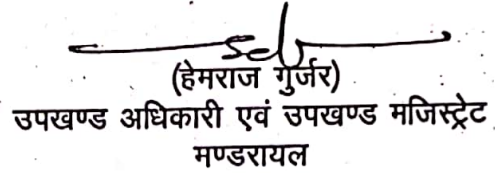 (हेमराज गुर्जर)
उपखण्ड अधिकारी एवं उपखण्ड मजिस्ट्रेट
मण्डरायल